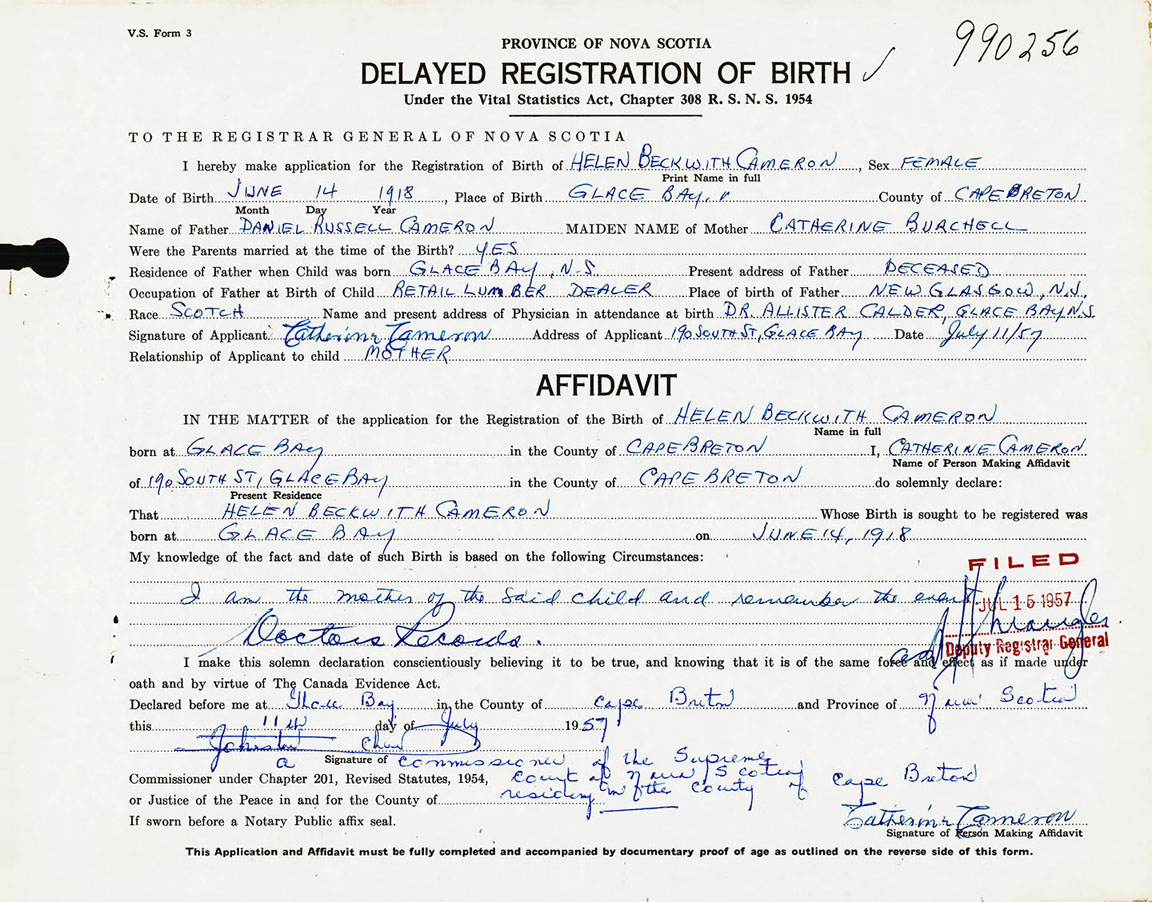 V.S. Form 3
990256
PROVINCE OF NOVA SCOTIA
DELAYED REGISTRATION OF BIRTH ✓
Under the Vital Statistics Act, Chapter 308 R. S. N. S. 1954
TO THE REGISTRAR GENERAL OF NOVA SCOTIA
I hereby make application for the Registration of Birth of HELEN BECKWITH CAMERON, Sex FEMALE
Print Name in full
Date of Birth JUNE 14 1918, Place of Birth GLACE BAY, County of CAPE BRETON
Month Day Year
Name of Father DANIEL RUSSELL CAMERON MAIDEN NAME of Mother CATHERINE BURCHELL
Were the Parents married at the time of the Birth? YES
Residence of Father when Child was born GLACE BAY, N.S. Present address of Father DECEASED
Occupation of Father at Birth of Child RETAIL LUMBER DEALER Place of birth of Father NEW GLASGOW, N.S.
Race SCOTCH Name and present address of Physician in attendance at birth DR. ALLISTER CALDER, GLACE BAY N.S.
Signature of Applicant Catherine Cameron Address of Applicant 190 SOUTH ST, GLACE BAY Date July 11/57
Relationship of Applicant to child MOTHER
AFFIDAVIT
IN THE MATTER of the application for the Registration of the Birth of HELEN BECKWITH CAMERON
Name in full
born at GLACE BAY in the County of CAPE BRETON I, CATHERINE CAMERON
Name of Person Making Affidavit
of 190 SOUTH ST, GLACE BAY in the County of CAPE BRETON do solemnly declare:
Present Residence
That HELEN BECKWITH CAMERON Whose Birth is sought to be registered was
born at GLACE BAY on JUNE 14, 1918
My knowledge of the fact and date of such Birth is based on the following Circumstances:
FILED
I am the mother of the said child and remember the event
JUL 15 1957
Doctors Records.
Deputy Registrar General
I make this solemn declaration conscientiously believing it to be true, and knowing that it is of the same force and effect as if made under
oath and by virtue of The Canada Evidence Act.
Declared before me at Glace Bay in the County of Cape Breton and Province of Nova Scotia
this 11th day of July 1957
Signature of
a Commissioner of the Supreme
Commissioner under Chapter 201, Revised Statutes, 1954, Court of Nova Scotia
or Justice of the Peace in and for the County of residing in the County of Cape Breton
If sworn before a Notary Public affix seal.
Catherine Cameron
Signature of Person Making Affidavit
This Application and Affidavit must be fully completed and accompanied by documentary proof of age as outlined on the reverse side of this form.